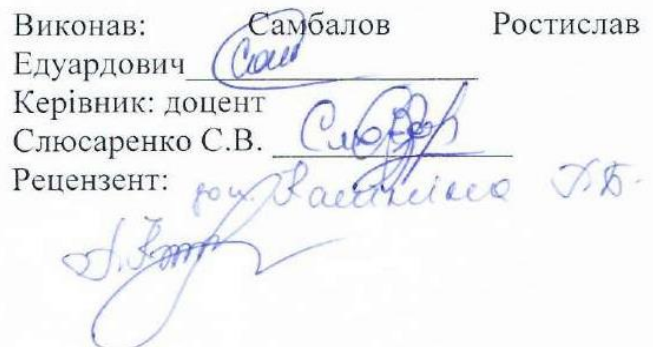 Виконав: Самбалов Ростислав
Едуардович
Керівник: доцент
Слюсаренко С.В.
Рецензент: доц.